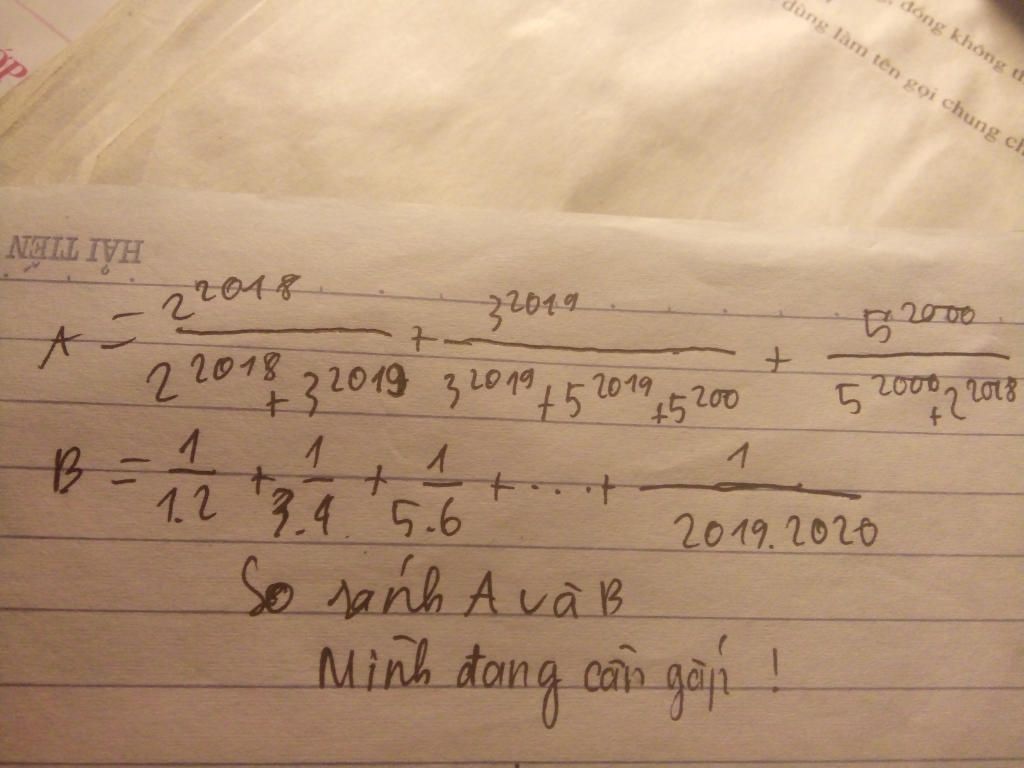 ỚP
đồng không th
dùng làm tên gọi chung ch
HẢI TIẾN
A = 2^2018 / (2^2018 + 3^2019) + 3^2019 / (3^2019 + 5^2019 + 5^200) + 5^2000 / (5^2000 + 2^2018)
B = 1/1.2 + 1/3.4 + 1/5.6 + .... + 1/2019.2020
So sánh A và B
Mình đang cần gấp !